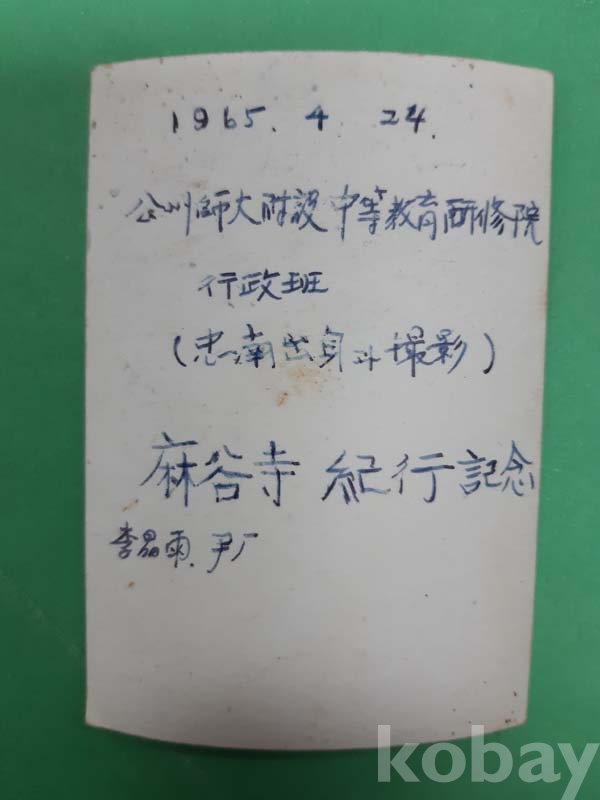 1965. 4. 24.
公州師大附設 中等教育研修院
行政班
(忠南出身과 撮影)
麻谷寺 紀行記念
李昌雨. 尹厂
kobay